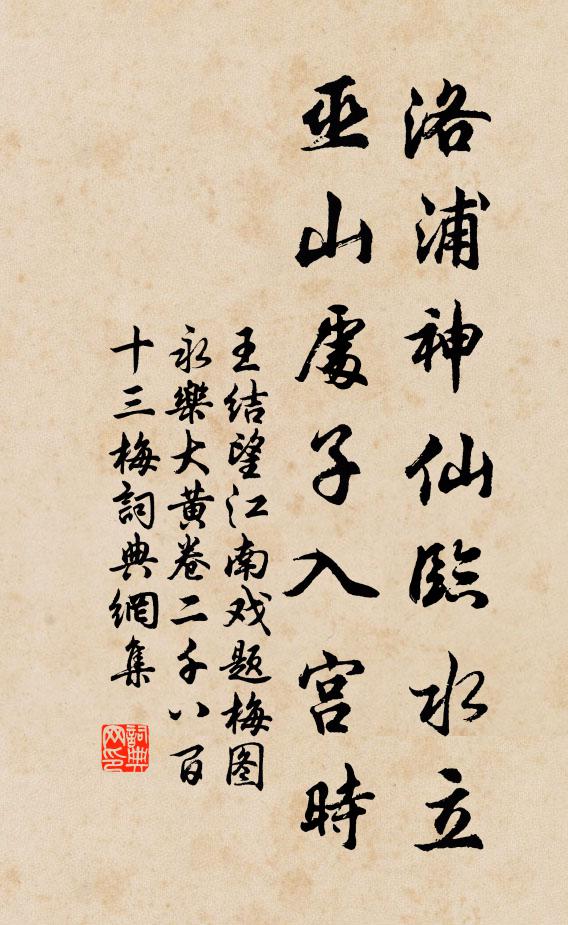 洛浦神仙臨水立
巫山處子入宫時
王结望江南戏题梅图
永樂大黄卷二千八百
十三梅詞典網集
詞典
网印